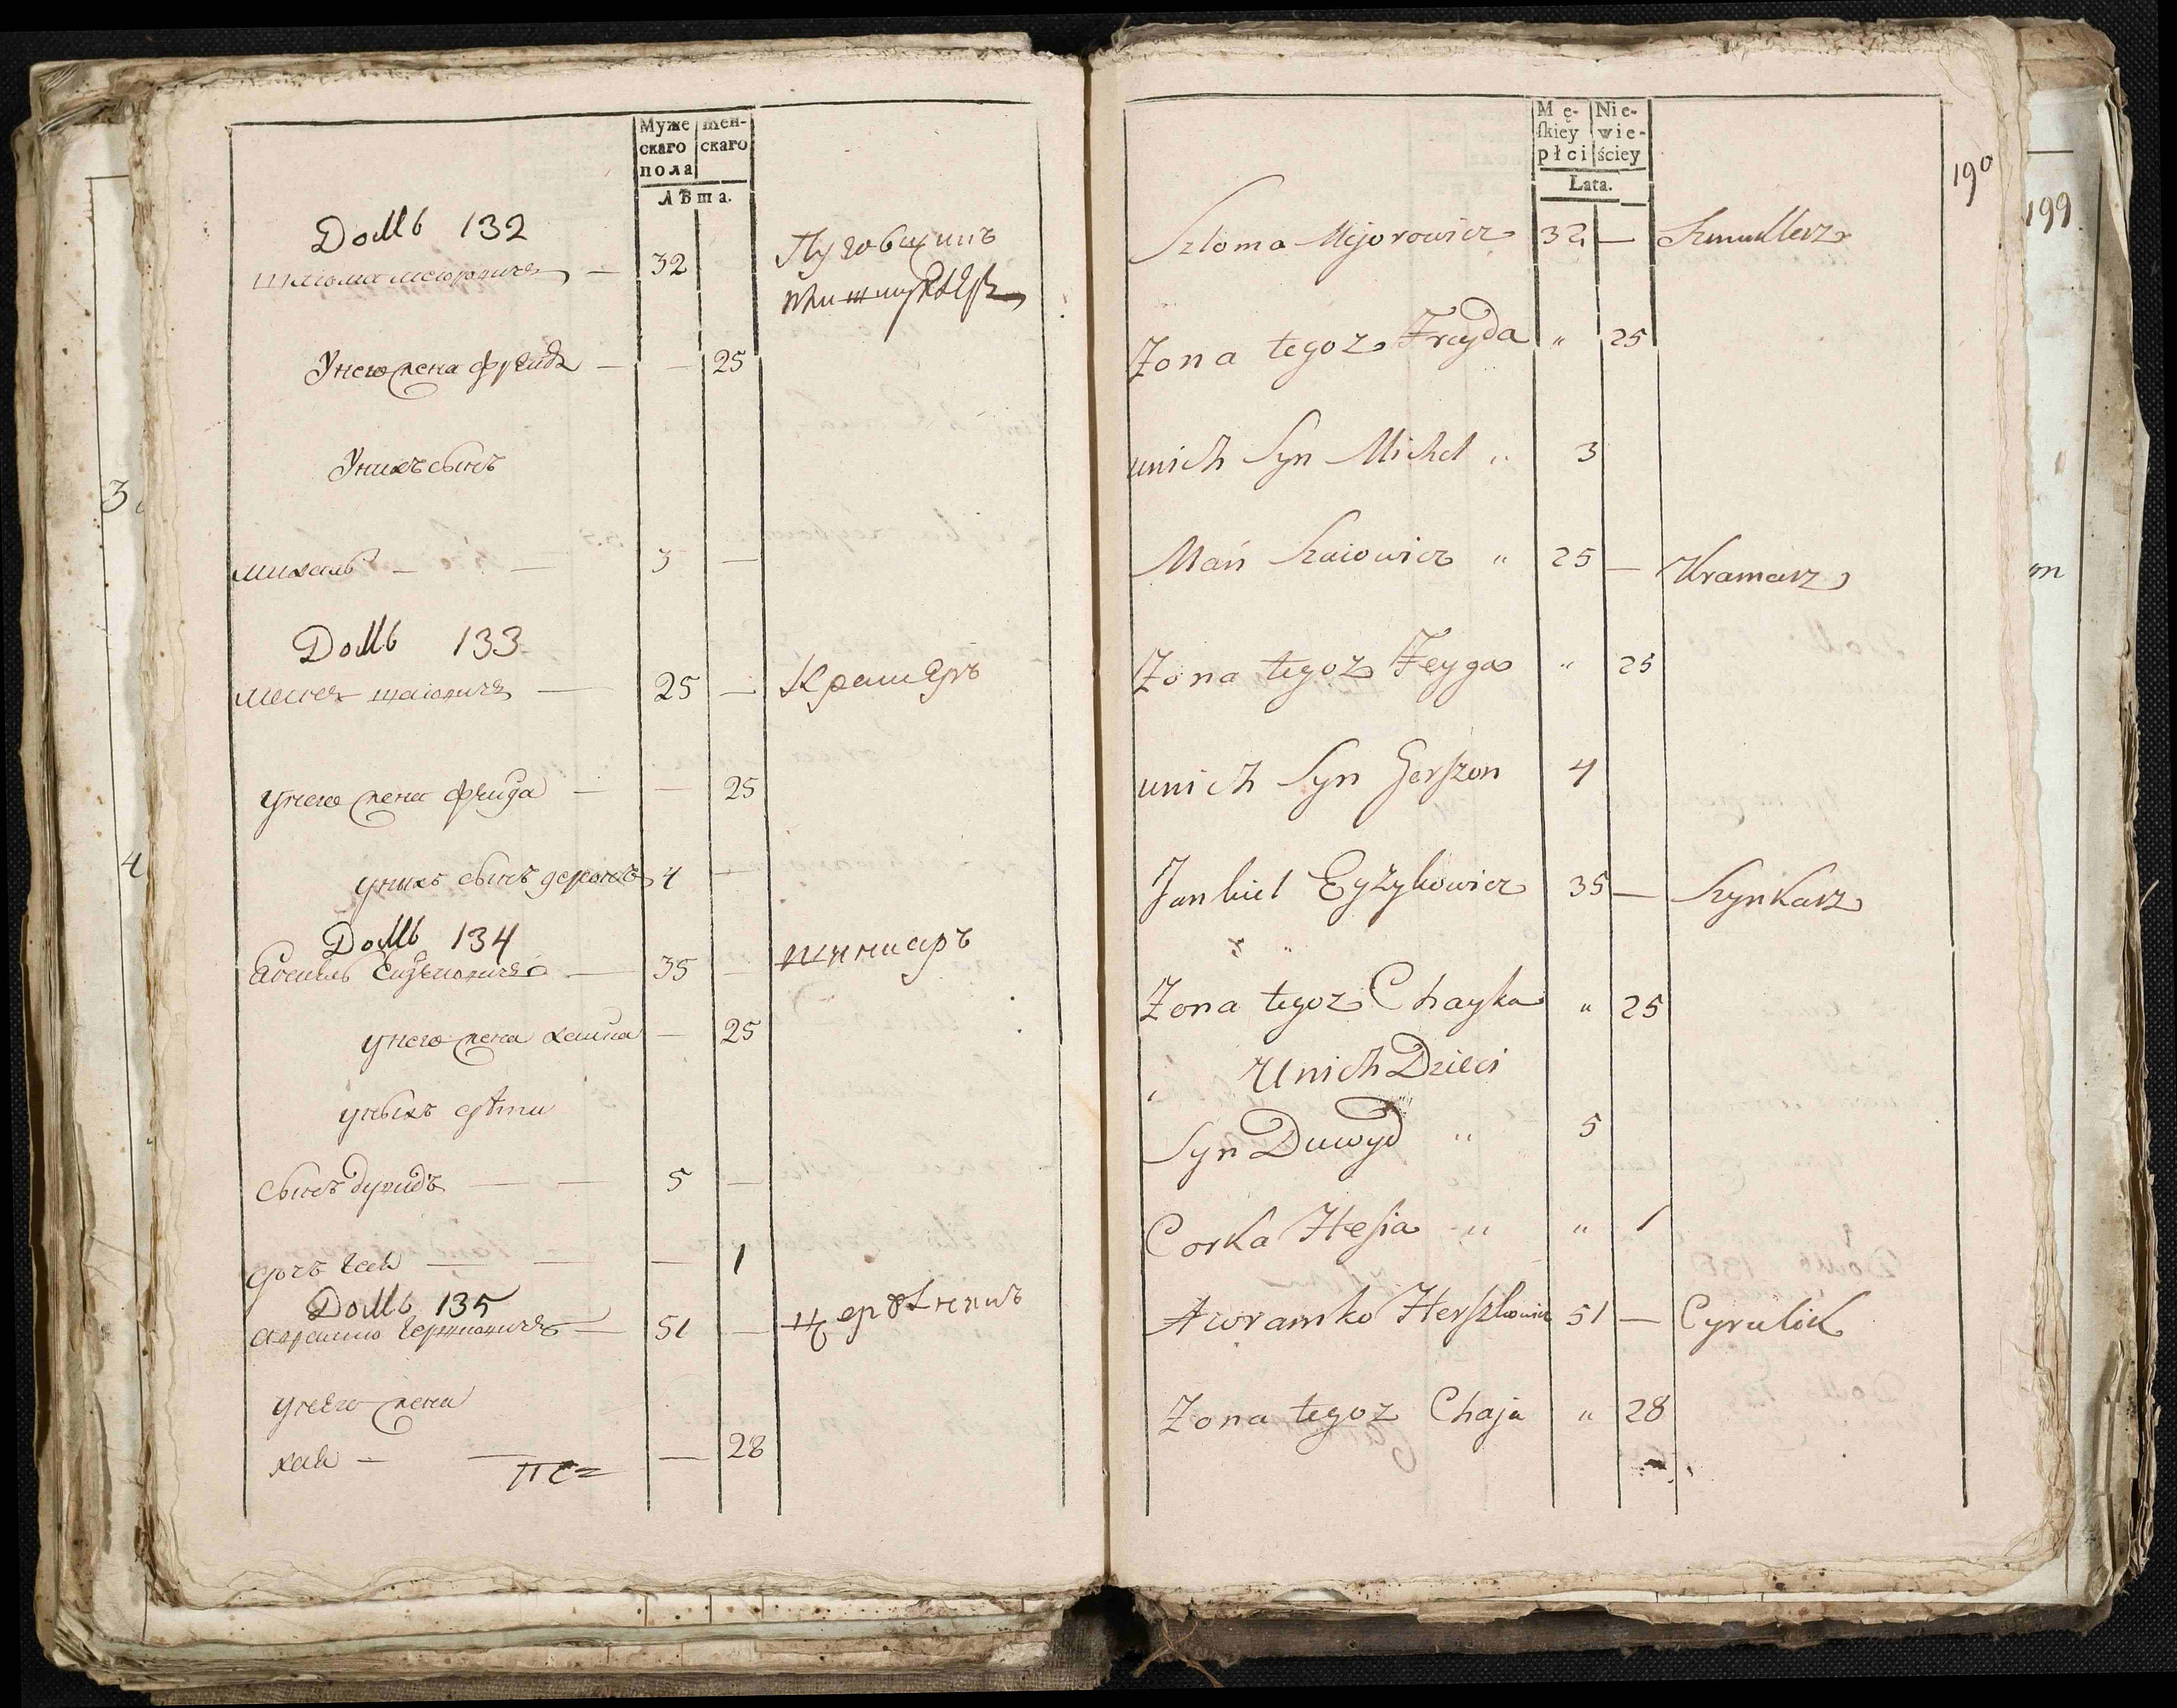 Муже
скаго
пола
Жен-
скаго
Лѣта.
Домъ 132
Шлiома меiоровичъ — 32
Пуговшикъ
У него жена фрейда — — 25
У нихъ сынъ
михель — — 3 —
Домъ 133
шаiовичъ — 25 — Крамаръ
у него жена фейга — — 25
у нихъ сынъ герсонъ 4 —
Домъ 134
Янкель — 35 — шинкаръ
у него жена хаика — 25
у ныхъ дѣти
сынъ дувидъ — — 5 —
дочъ геся — — — 1
Домъ 135
аврамко гершковичъ — 51 —
у него жена
хая — — 28
Mę-
skiey
płci
Nie-
wie-
ściey
Lata.
190
199
Szloma Mejorowicz 32 — Szmuklerz
Zona tegoz Freyda „ 25
unich Syn Michel „ 3
Mań Szaiowicz „ 25 — Kramarz
Zona tegoz Feyga „ 25
unich Syn Gerszon 4
Jankiel Eyzykowicz 35 — Szynkarz
Zona tegoz Chayka „ 25
Unich Dzieci
Syn Duwyd „ 5
Corka Hesia „ „ 1
Awramko Herszkowicz 51 — Cyrulick
Zona tegoz Chaja „ 28